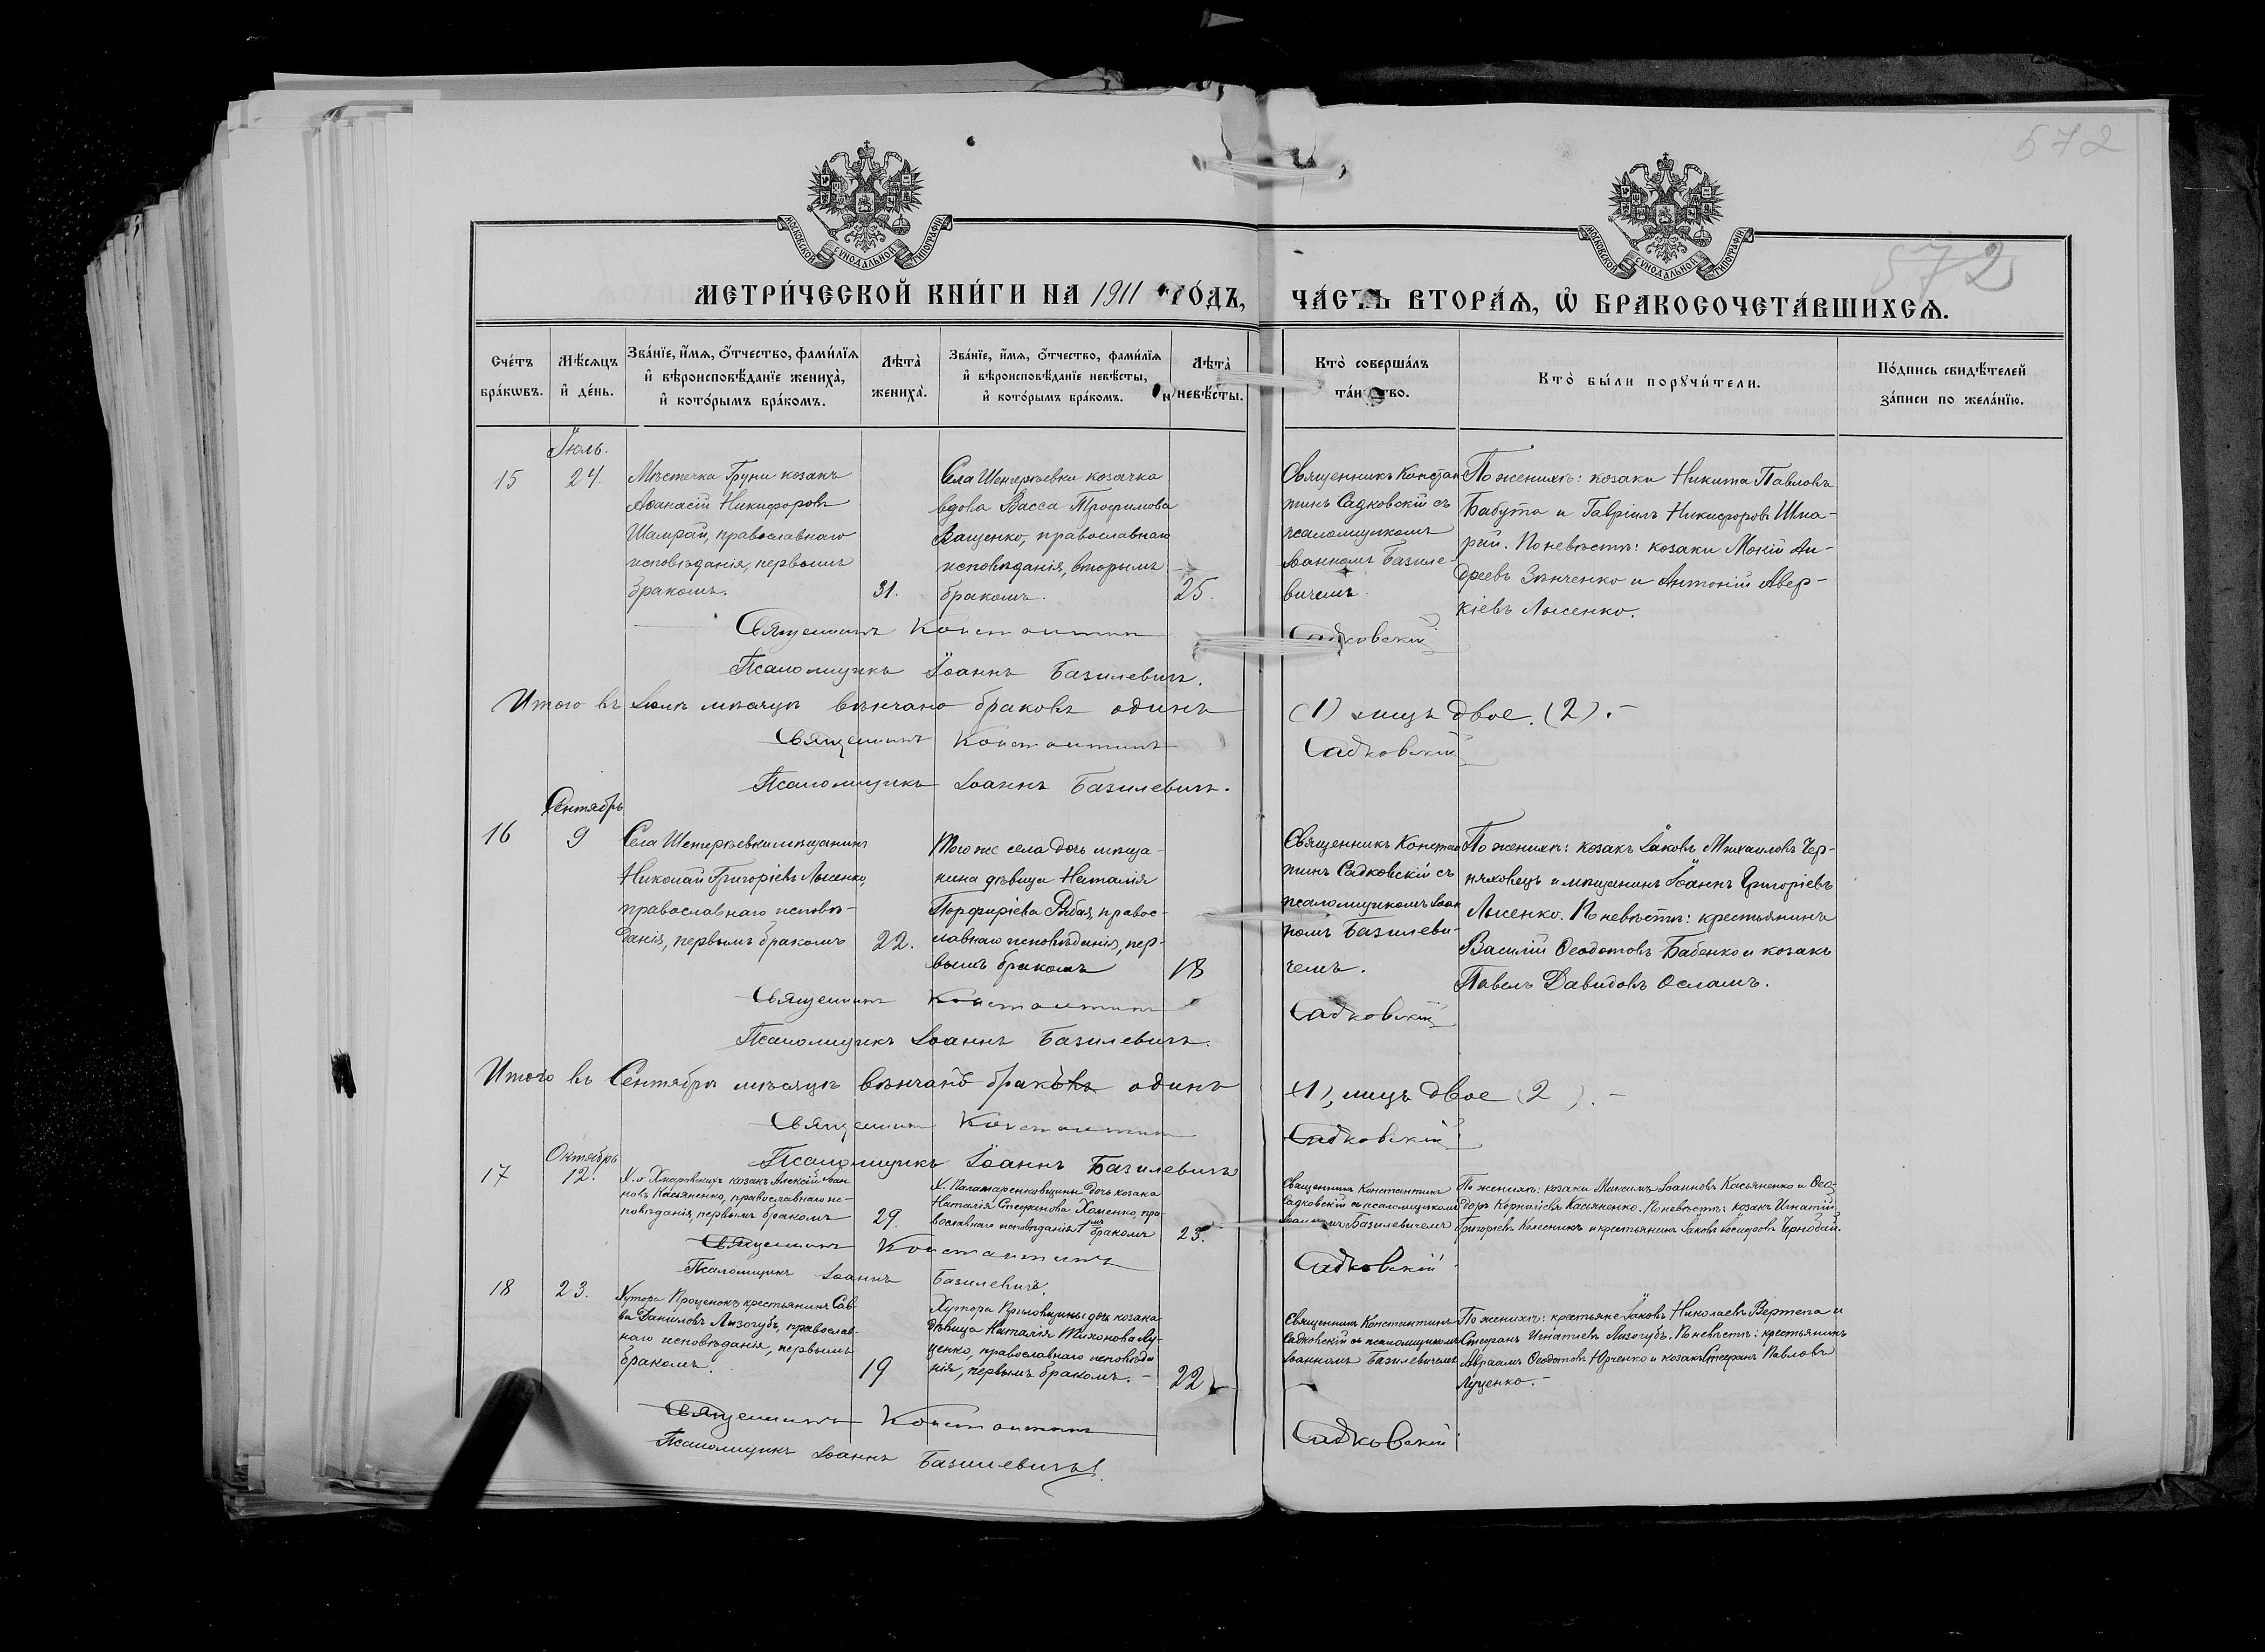 572
572
МОСКОВСКОЙ СѴНОДАЛЬНОЙ ТИПОГРАФІИ
МОСКОВСКОЙ СѴНОДАЛЬНОЙ ТИПОГРАФІИ
МЕТРИ́ЧЕСКОЙ КНИ́ГИ НА 1911 ГО́ДЪ, ЧА́СТЬ ВТОРА́Ѧ, Ѡ҆ БРАКОСОЧЕТА́ВШИХСѦ.
Сче́тъ бра́кѡвъ.
Мѣ́сѧцъ и҆ де́нь.
Зва́нїе, и҆́мѧ, ѻ҆́тчество, фами́лїѧ
и҆ вѣроисповѣ́данїе жениха̀,
и҆ кото́рымъ бра́комъ.
Лѣта̀ жениха̀.
Зва́нїе, и҆́мѧ, ѻ҆́тчество, фами́лїѧ
и҆ вѣроисповѣ́данїе невѣ́сты,
и҆ кото́рымъ бра́комъ.
Лѣта̀ невѣ́сты.
Кто̀ соверша́лъ
та́инство.
Кто̀ бы́ли порꙋчи́тели.
По́дпись свидѣ́телей
за́писи по жела́нїю.
Іюль.
15
24
Мѣстечка Груни козакъ
Аѳанасій Никифоровъ
Шапрай, православнаго
исповѣданія, первымъ
бракомъ.
31.
Села козачка
вдова Васса Трофимова
Ващенко, православнаго
исповѣданія, вторымъ
бракомъ.
25.
Священникъ Констан
тинъ Садковскій съ
псаломщикомъ
Іоанномъ Базиле-
вичемъ
По женихѣ: козаки Никита Павловъ
Бабута и Гавріилъ Никифоровъ Шпа-
рай. По невѣстѣ: козаки Ан-
дреевъ Зѣнченко и Антоній Авер-
кіевъ Лысенко.
Священникъ Константинъ Садковскій
Псаломщикъ Іоаннъ Базилевичъ.
Итого въ Іюлѣ мѣсяцѣ вѣнчано браковъ одинъ (1) лицъ двое. (2).–
Священникъ Константинъ Садковскій
Псаломщикъ Іоаннъ Базилевичъ.
Сентябрь
16
9
Села мѣщанинъ
Николай Григоріевъ Лысенко,
православнаго исповѣ-
данія, первымъ бракомъ
22.
Того же села дочь мѣща-
нина дѣвица Наталія
Порфиріева Рябая, правос-
лавнаго исповѣданія, пер-
вымъ бракомъ
18
Священникъ Констан
тинъ Садковскій съ
псаломщикомъ Іоан
номъ Базилеви-
чемъ.
По женихѣ: козакъ Іаковъ Михаиловъ Чер-
няховецъ и мѣщанинъ Іоаннъ Григоріевъ
Лысенко. По невѣстѣ: крестьянинъ
Василій Ѳеодотовъ Бабенко и козакъ
Павелъ Давидовъ Осламъ.
Священникъ Константинъ Садковскій
Псаломщикъ Іоаннъ Базилевичъ.
Итого въ Сентябрѣ мѣсяцѣ вѣнчанъ браковъ одинъ (1), лицъ двое (2).–
Священникъ Константинъ Садковскій
Псаломщикъ Іоаннъ Базилевичъ
Октябрь
17
12.
козакъ Алексій Іоан
новъ Касьяненко, православнаго ис-
повѣданія, первымъ бракомъ
29.
Х. Паламаренковщины дочь козака
Наталія Стефанова Хоменко, пра-
вославнаго исповѣданія 1мъ бракомъ
23.
Священникъ Константинъ
Садковскій съ псаломщикомъ
Іоанномъ Базилевичемъ
По женихѣ: козаки Максимъ Іоанновъ Касьяненко и Ѳео-
доръ Корниліевъ Касьяненко. По невѣстѣ: козакъ Игнатій
Григоріевъ Колесникъ и крестьянинъ Іаковъ Іосифовъ Чернобай.
Священникъ Константинъ Садковскій
Псаломщикъ Іоаннъ Базилевичъ.
18
23.
Хутора Проценокъ крестьянинъ Сав-
ва Даниловъ Лизогубъ, православ-
наго исповѣданія, первымъ
бракомъ.
19
Хутора дочь козака
дѣвица Наталія Тихонова Лу-
ценко, православнаго исповѣда
нія, первымъ бракомъ.–
22
Священникъ Константинъ
Садковскій съ псаломщикомъ
Іоанномъ Базилевичемъ
По женихѣ: крестьяне Іаковъ Николаевъ Вертепа и
Стефанъ Игнатіевъ Лизогубъ. По невѣстѣ: крестьянинъ
Авраамъ Ѳеодотовъ Юрченко и козакъ Стефанъ Павловъ
Луценко.–
Священникъ Константинъ Садковскій
Псаломщикъ Іоаннъ Базилевичъ.